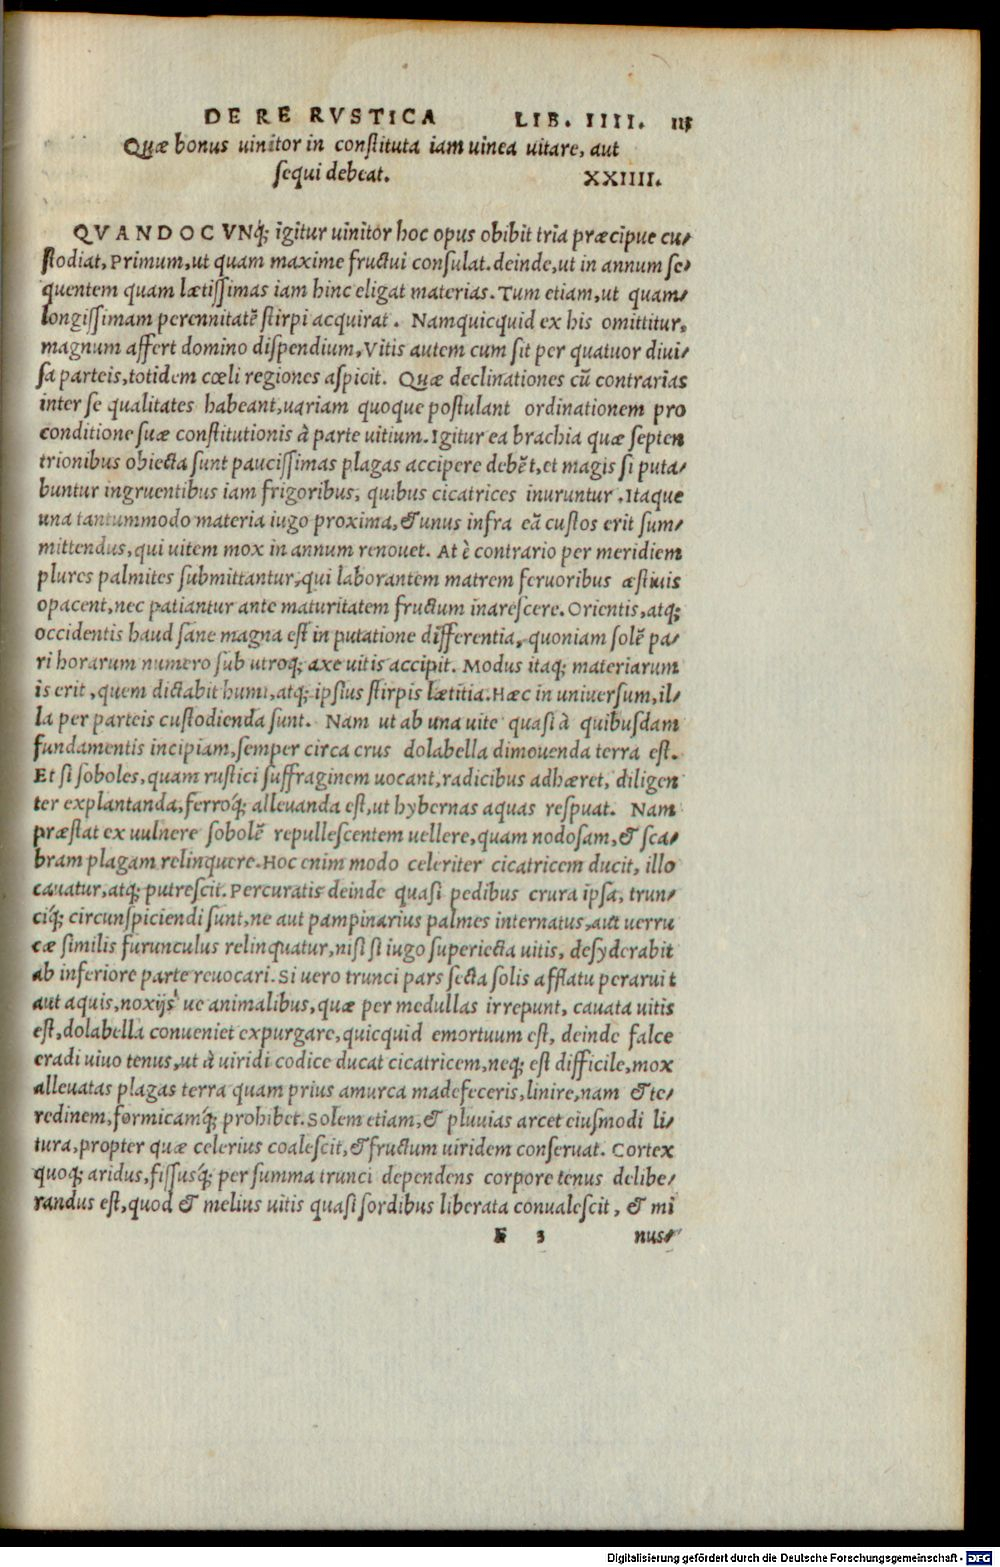 DE RE RVSTICA LIB. IIII. 113
Quæ bonus uinitor in constituta iam uinea uitare, aut
sequi debeat. XXIIII.
QVANDOCVNq́; igitur uinitor hoc opus obibit tria præcipue cu/
stodiat, Primum, ut quam maxime fructui consulat. deinde, ut in annum se/
quentem quam lætissimas iam hinc eligat materias. Tum etiam, ut quam/
longissimam perennitatẽ stirpi acquirat. Namquicquid ex his omittitur,
magnum affert domino dispendium, Vitis autem cum sit per quatuor diui/
sa parteis, totidem cœli regiones aspicit. Quæ declinationes cũ contrarias
inter se qualitates habeant, uariam quoque postulant ordinationem pro
conditione suæ constitutionis à parte uitium. Igitur ea brachia quæ septen
trionibus obiecta sunt paucissimas plagas accipere debẽt, et magis si puta/
buntur ingruentibus iam frigoribus, quibus cicatrices inuruntur. Itaque
una tantummodo materia iugo proxima, & unus infra eã custos erit sum/
mittendus, qui uitem mox in annum renouet. At è contrario per meridiem
plures palmites submittantur, qui laborantem matrem feruoribus æstiuis
opacent, nec patiantur ante maturitatem fructum inarescere. Orientis, atq;
occidentis haud sane magna est in putatione differentia, quoniam solẽ pa/
ri horarum numero sub utroq; axe uitis accipit. Modus itaq; materiarum
is erit, quem dictabit humi, atq; ipsius stirpis lætitia. Hæc in uniuersum, il/
la per parteis custodienda sunt. Nam ut ab una uite quasi à quibusdam
fundamentis incipiam, semper circa crus dolabella dimouenda terra est.
Et si soboles, quam rustici suffraginem uocant, radicibus adhæret, diligen
ter explantanda, ferroq́; alleuanda est, ut hybernas aquas respuat. Nam
præstat ex uulnere sobolẽ repullescentem uellere, quam nodosam, & sca/
bram plagam relinquere. Hoc enim modo celeriter cicatricem ducit, illo
cauatur, atq; putrescit. Percuratis deinde quasi pedibus crura ipsa, trun/
ciq́; circunspiciendi sunt, ne aut pampinarius palmes internatus, aut uerru
cæ similis furunculus relinquatur, nisi si iugo superiecta uitis, desyderabit
ab inferiore parte reuocari. Si uero trunci pars secta solis afflatu peraruit
aut aquis, noxijs ue animalibus, quæ per medullas irrepunt, cauata uitis
est, dolabella conueniet expurgare, quicquid emortuum est, deinde falce
eradi uiuo tenus, ut à uiridi codice ducat cicatricem, neq; est difficile, mox
alleuatas plagas terra quam prius amurca madefeceris, linire, nam & te/
redinem, formicamq́; prohibet. Solem etiam, & pluuias arcet eiusmodi li/
tura, propter quæ celerius coalescit, & fructum uiridem conseruat. Cortex
quoq; aridus, fissusq́; per summa trunci dependens corpore tenus delibe/
randus est, quod & melius uitis quasi sordibus liberata conualescit, & mi
F 3 nus/
Digitalisierung gefördert durch die Deutsche Forschungsgemeinschaft - DFG